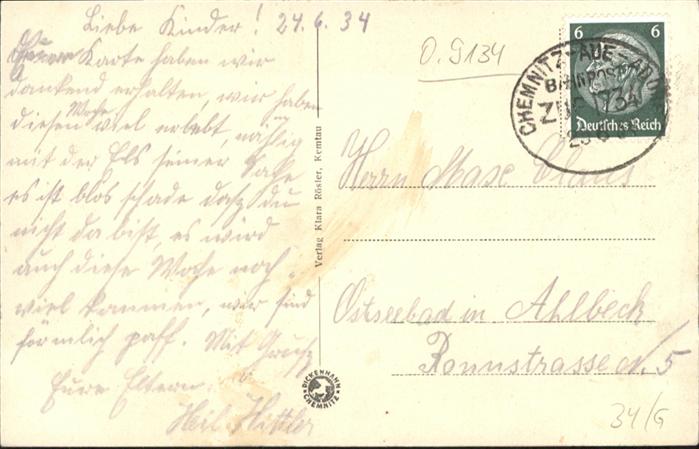 Liebe Kinder! 24.6.34
Karte haben wir
dankend erhalten, wir haben
diesen Woche viel erlebt, nählig
mit der Els seiner Sake
es ist blos schade dahs du
nicht da bist, es wird
auch diese Woche noch
viel kommen, wir sind
förmlich paff. Mit Gruhs
Eure Eltern.
Heil Hittler
Verlag Klara Rösler, Kemtau
DICKENHAHN CHEMNITZ
O. 9134
6 6
Deutsches Reich
CHEMNITZ-AUE-ADORF
BAHNPOST
ZUG 1734
Herrn Max Claus
Ostseebad in Ahlbeck
Ronnstrasse N. 5
34/G